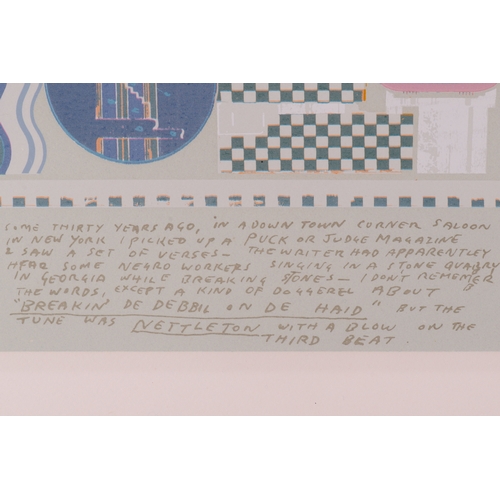 SOME THIRTY YEARS AGO, IN A DOWN TOWN CORNER SALOON
IN NEW YORK I PICKED UP A PUCK OR JUDGE MAGAZINE
& SAW A SET OF VERSES — THE WRITER HAD APPARENTLY
HEAR SOME NEGRO WORKERS SINGING IN A STONE QUARRY
IN GEORGIA WHILE BREAKING STONES — I DONT REMEMBER
THE WORDS, EXCEPT A KIND OF DOGGEREL ABOUT
"BREAKIN' DE DEBBIL ON DE HAID" BUT THE
TUNE WAS NETTLETON WITH A BLOW ON THE
THIRD BEAT.